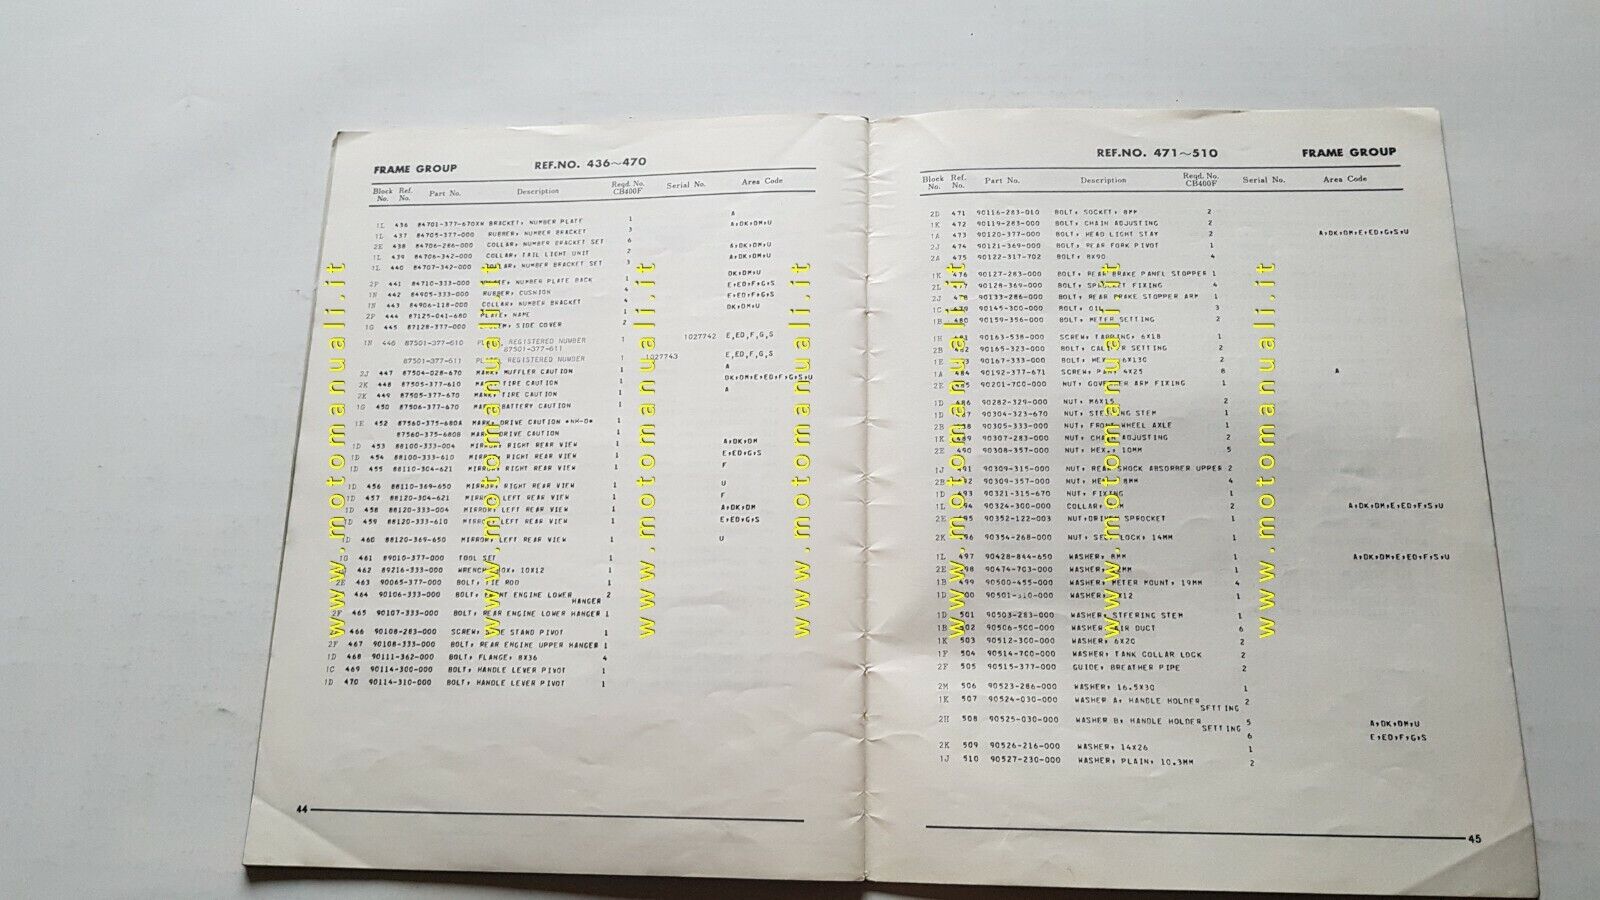 FRAME GROUP REF.NO. 436~470
Block No. Ref. No. Part No. Description Reqd. No. CB400F Serial No. Area Code
1L 436 84701-377-670XW BRACKET, NUMBER PLATE 1 A
1L 437 84705-377-000 RUBBER, NUMBER BRACKET 3 A,DK,DM,U
2E 438 84706-286-000 COLLAR, NUMBER BRACKET SET 6
1L 439 84706-342-000 COLLAR, TAIL LIGHT UNIT 2 A,DK,DM,U
1L 440 84707-342-000 NUMBER BRACKET SET 3 A,DK,DM,U
2F 441 84710-333-000 NUMBER PLATE BACK 1 DK,DM,U
1N 442 84905-333-000 RUBBER, CUSHION 4 E,ED,F,G,S
1N 443 84906-118-000 COLLAR, NUMBER BRACKET 4 E,ED,F,G,S
2F 444 87125-041-680 PLATE, NAME 1 DK,DM,U
1G 445 87128-377-000 SIDE COVER 2
1N 446 87501-377-610 REGISTERED NUMBER 1 1027742 E,ED,F,G,S
87501-377-611
87501-377-611 REGISTERED NUMBER 1 1027743 E,ED,F,G,S
2J 447 87504-028-670 MARK, MUFFLER CAUTION 1 A
2K 448 87505-377-610 MARK, TIRE CAUTION 1 DK,DM,E,ED,F,G,S,U
2K 449 87505-377-670 MARK, TIRE CAUTION 1 A
1G 450 87506-377-670 MARK, BATTERY CAUTION 1
1E 452 87560-375-680A MARK, DRIVE CAUTION *HM-D* 1
87560-375-680B MARK, DRIVE CAUTION 1
1D 453 88100-333-004 MIRROR, RIGHT REAR VIEW 1 A,DK,DM
1D 454 88100-333-610 MIRROR, RIGHT REAR VIEW 1 E,ED,G,S
1D 455 88110-304-621 MIRROR, RIGHT REAR VIEW 1 F
1D 456 88110-369-650 MIRROR, RIGHT REAR VIEW 1 U
1D 457 88120-304-621 MIRROR, LEFT REAR VIEW 1 F
1D 458 88120-333-004 MIRROR, LEFT REAR VIEW 1 A,DK,DM
1D 459 88120-333-610 MIRROR, LEFT REAR VIEW 1 E,ED,G,S
1D 460 88120-369-650 MIRROR, LEFT REAR VIEW 1 U
1G 461 89010-377-000 TOOL SET 1
462 89216-333-000 WRENCH, BOX, 10X12 1
2E 463 90065-377-000 BOLT, TIE ROD 1
464 90106-333-000 BOLT, FRONT ENGINE LOWER 2
HANGER
2F 465 90107-333-000 BOLT, REAR ENGINE LOWER HANGER 1
466 90108-283-000 SCREW, SIDE STAND PIVOT 1
2F 467 90108-333-000 BOLT, REAR ENGINE UPPER HANGER 1
1D 468 90111-362-000 BOLT, FLANGE, 8X36 4
1C 469 90114-300-000 BOLT, HANDLE LEVER PIVOT 1
1D 470 90114-310-000 BOLT, HANDLE LEVER PIVOT 1
44
REF.NO. 471~510 FRAME GROUP
Block No. Ref. No. Part No. Description Reqd. No. CB400F Serial No. Area Code
2D 471 90116-283-010 BOLT, SOCKET, 8MM 2
1K 472 90119-283-000 BOLT, CHAIN ADJUSTING 2
1A 473 90120-377-000 BOLT, HEAD LIGHT STAY 2 A,DK,DM,E,ED,F,G,S,U
2J 474 90121-369-000 BOLT, REAR FORK PIVOT 1
2A 475 90122-317-702 BOLT, 8X90 4
1K 476 90127-283-000 BOLT, REAR BRAKE PANEL STOPPER 1
2L 477 90128-369-000 BOLT, SPROCKET FIXING 4
2J 478 90133-286-000 BOLT, REAR BRAKE STOPPER ARM 1
1C 479 90145-300-000 BOLT, OIL 3
1B 480 90159-356-000 BOLT, METER SETTING 2
1H 481 90163-538-000 SCREW, TAPPING, 6X18 1
2B 482 90165-323-000 BOLT, CALIPER SETTING 2
1E 483 90167-333-000 BOLT, HEX., 6X130 2
1A 484 90192-377-671 SCREW, PAN, 4X25 8 A
2E 485 90201-700-000 NUT, GOVERNER ARM FIXING 1
1D 486 90282-329-000 NUT, M6X15 2
1D 487 90304-323-670 NUT, STEERING STEM 1
2B 488 90305-333-000 NUT, FRONT WHEEL AXLE 1
1K 489 90307-283-000 NUT, CHAIN ADJUSTING 2
2E 490 90308-357-000 NUT, HEX., 10MM 5
1J 491 90309-315-000 NUT, REAR SHOCK ABSORBER UPPER 2
2B 492 90309-357-000 NUT, HEX., 8MM 4
1D 493 90321-315-670 NUT, FIXING 1
1L 494 90324-300-000 COLLAR, 2 A,DK,DM,E,ED,F,S,U
2E 495 90352-122-003 NUT, DRIVEN SPROCKET 1
2K 496 90354-268-000 NUT, SELF LOCK, 14MM 1
1L 497 90428-844-650 WASHER, 8MM 1 A,DK,DM,E,ED,F,S,U
2E 498 90474-703-000 WASHER, 1
1B 499 90500-455-000 WASHER, METER MOUNT, 19MM 4
1D 500 90501-310-000 WASHER, 1
1D 501 90503-283-000 WASHER, STEERING STEM 1
1B 502 90506-500-000 WASHER, AIR DUCT 6
1K 503 90512-300-000 WASHER, 6X20 2
1F 504 90514-700-000 WASHER, TANK COLLAR LOCK 2
2F 505 90515-377-000 GUIDE, BREATHER PIPE 2
2M 506 90523-286-000 WASHER, 16.5X30 1
1K 507 90524-030-000 WASHER A, HANDLE HOLDER 2
SETTING
2H 508 90525-030-000 WASHER B, HANDLE HOLDER 5 A,DK,DM,U
SETTING 6 E,ED,F,G,S
2K 509 90526-216-000 WASHER, 14X26 1
1J 510 90527-230-000 WASHER, PLAIN, 10.3MM 2
45
www.motomanuali.it
www.motomanuali.it
www.motomanuali.it
www.motomanuali.it
www.motomanuali.it
www.motomanuali.it
www.motomanuali.it